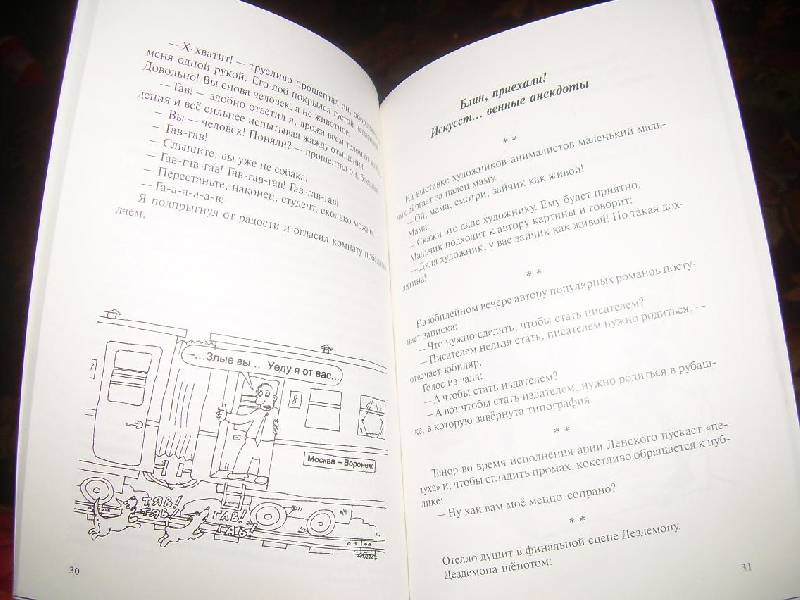 -- Х-хватит! -- трусливо прошептал он,
меня одной рукой. Его лоб покрылся густой
Довольно! Вы снова человек, а не животное
-- Гав! -- злобно ответил я,
деляя и всё сильнее испытывая жажду
-- Вы -- человек! Поняли? --
-- Гав-гав!
-- Слышите, вы уже не собака.
-- Гав-гав-гав! Гав-гав-гав! Гав-гав-гав!
-- Перестаньте, наконец, студент, сколько можно
-- Га-а-а-а-а-в!
Я подпрыгнул от радости и огласил комнату
лаем.
-... Злые вы ... Уеду я от вас...
8
Москва – Воронеж
ГАВ!
ГАВ!
30
Блин, приехали!
Искусст... венные анекдоты
* *
На выставке художников-анималистов маленький маль-
чик за палец маму:
-- Ой, мама, смотри, зайчик как живой!
Мама:
-- Скажи это дяде художнику. Ему будет приятно.
Мальчик подходит к автору картины и говорит:
-- Дядя художник, у вас зайчик как живой! Но такая
* *
На юбилейном вечере автору популярных романов посту-
пает записка:
-- Что нужно сделать, чтобы стать писателем?
-- Писателем нельзя стать, писателем нужно родиться, --
отвечает юбиляр.
Голос из зала:
-- А чтобы стать издателем?
-- А вот чтобы стать издателем, нужно родиться в рубаш-
ке, в которую завёрнута типография.
* *
Тенор во время исполнения арии Ленского пускает «пе-
туха» и, чтобы сгладить промах, кокетливо обращается к пуб-
лике:
– Ну как вам моё меццо-сопрано?
* *
Отелло душит в финальной сцене Дездемону.
Дездемона шёпотом:
31